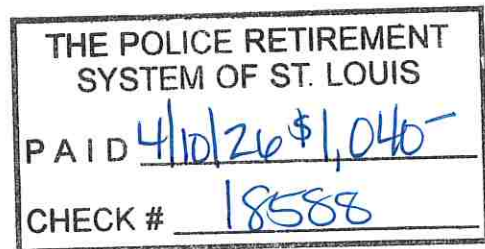 THE POLICE RETIREMENT
SYSTEM OF ST. LOUIS
PAID 4/10/26 $1,040-
CHECK # 18588